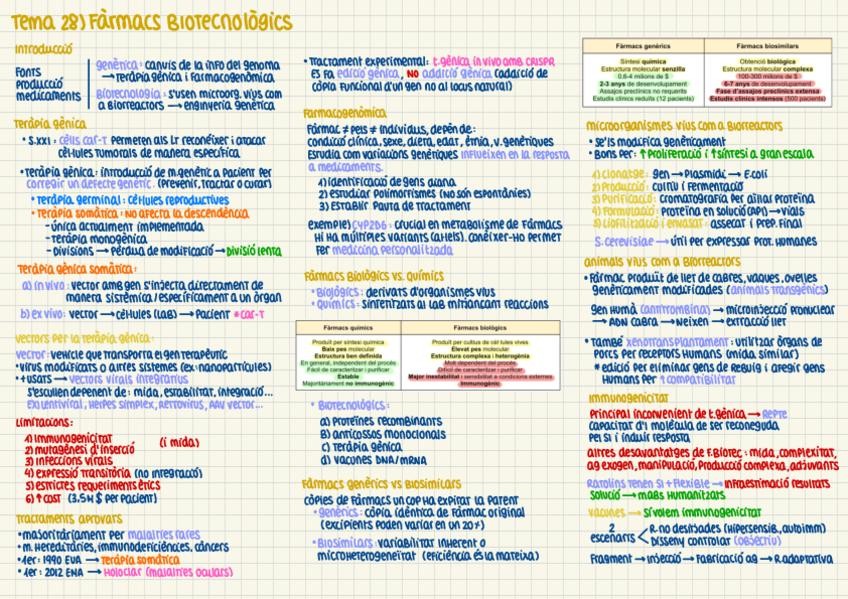 Tema 28) Fàrmacs Biotecnològics
Introducció
Fonts
producció
medicaments
genètica: canvis de la info del genoma
→ Teràpia gènica i Farmacogenòmica
Biotecnologia: s'usen microorg. vius com
a Bioreactors → enginyeria genètica
Teràpia gènica
• S.XXI: cèl·lules CAR-T permeten als LT reconèixer i atacar
cèl·lules tumorals de manera específica
• Teràpia gènica: introducció de m.genètic a pacient per
corregir un defecte genètic. (Prevenir, tractar o curar)
• Teràpia germinal: cèl·lules reproductives
• Teràpia somàtica: no afecta la descendència
- única actualment implementada
- Teràpia monogènica
- Divisions → pèrdua de modificació → Divisió lenta
Teràpia gènica somàtica:
a) in vivo: vector amb gen s'injecta directament de
manera sistèmica/específicament a un òrgan
b) ex vivo: vector → cèl·lules (LAB) → Pacient *CAR-T
vectors per la teràpia gènica:
vector: vehicle que transporta el gen terapèutic
• virus modificats o altres sistemes (ex: nanopartícules)
• + usats → vectors virals integratius
s'escullen depenent de: mida, estabilitat, integració...
Ex) Lentiviral, Herpes simplex, Retrovirus, AAV vector...
Limitacions:
1) Immunogenicitat
2) mutagènesi d'inserció
(i mida)
3) infeccions virals
4) expressió transitòria (no integració)
5) estrictes requeriments ètics
6) ↑ cost (3.5M $ per pacient)
Tractaments aprovats
• majoritàriament per malalties rares
• m. Hereditàries, immunodeficiències, càncers
• 1er: 1990 EUA → Teràpia somàtica
• 1er: 2012 EMA → Holoclar (malalties oculars)
• Tractament experimental: t.gènica in vivo amb CRISPR
Es fa edició gènica, NO addició gènica (addició de
còpia funcional d'un gen no al locus natural)
Farmacogenòmica
Fàrmac ≠ pels ≠ individus, depèn de:
condició clínica, sexe, dieta, edat, ètnia, v.genètiques
Estudia com variacions genètiques influeixen en la resposta
a medicaments.
1) Identificació de gens diana
2) estudiar polimorfismes (no són espontànies)
3) Establir pauta de tractament
exemple) CYP2D6: crucial en metabolisme de fàrmacs
Hi ha múltiples variants (al·lels). Conèixer-ho permet
fer medicina personalitzada
Fàrmacs Biològics vs. químics
• Biològics: derivats d'organismes vius
• químics: sintetitzats al LAB mitjançant reaccions
Fàrmacs químics
Fàrmacs biològics
Produït per síntesi química
Produït per cultiu de cèl·lules vives
Baix pes molecular
Elevat pes molecular
Estructura ben definida
Estructura complexa i heterogènia
En general, independent del procés
Molt dependent del procés
Fàcil de caracteritzar i purificar
Difícil de caracteritzar i purificar
Estable
Major inestabilitat i sensibilitat a condicions externes
Majoritàriament no immunogènic
Immunogènic
• Biotecnològics:
a) Proteïnes recombinants
B) anticossos monoclonals
C) Teràpia gènica
d) vacunes DNA/mRNA
Fàrmacs genèrics vs Biosimilars
còpies de fàrmacs un cop ha expirat la patent
• genèrics: còpia idèntica de fàrmac original
(excipients poden variar en un 20%)
• Biosimilars: variabilitat inherent o
microheterogeneïtat (eficiència és la mateixa)
Fàrmacs genèrics
Fàrmacs biosimilars
Síntesi química
Obtenció biològica
Estructura molecular senzilla
Estructura molecular complexa
0,6-4 milions de $
100-300 milions de $
2-3 anys de desenvolupament
6-7 anys de desenvolupament
Assajos preclínics no requerits
Fase d'assajos preclínics extensa
Estudis clínics reduïts (12 pacients)
Estudis clínics intensos (500 pacients)
microorganismes vius com a Bioreactors
• se'ls modifica genèticament
• Bons per: ↑ Proliferació i ↑ síntesi a gran escala
1) Clonatge: gen → Plasmidi → E.coli
2) Producció: cultiu i fermentació
3) Purificació: cromatografia per aïllar proteïna
4) Formulació: Proteïna en solució (API) → vials
5) Liofilització i envasat: assecat i prep. final
S. cerevisiae → útil per expressar prot. humanes
animals vius com a Bioreactors
• Fàrmac produït de llet de cabres, vaques, ovelles
genèticament modificades (animals transgènics)
gen humà (antitrombina) → microinjecció pronuclear
→ ADN cabra → neixen → extracció llet
• també xenotransplantament: utilitzar òrgans de
porcs per receptors humans (mida similar)
* edició per eliminar gens de rebuig i afegir gens
humans per ↑ compatibilitat
Immunogenicitat
Principal inconvenient de t.gènica → Repte
Capacitat d'1 molècula de ser reconeguda
pel SI i induir resposta
altres desavantatges de F.Biotec: mida, complexitat,
ag exogen, manipulació, producció complexa, adjuvants
Ratolins tenen SI + flexible → infraestimació resultats
Solució → mabs humanitzats
Vacunes → sí volem immunogenicitat
2
escenaris
R. no desitjades (hipersensib., autoimm)
Disseny controlar (objectiu)
Fragment → injecció → Fabricació ag → R.adaptativa